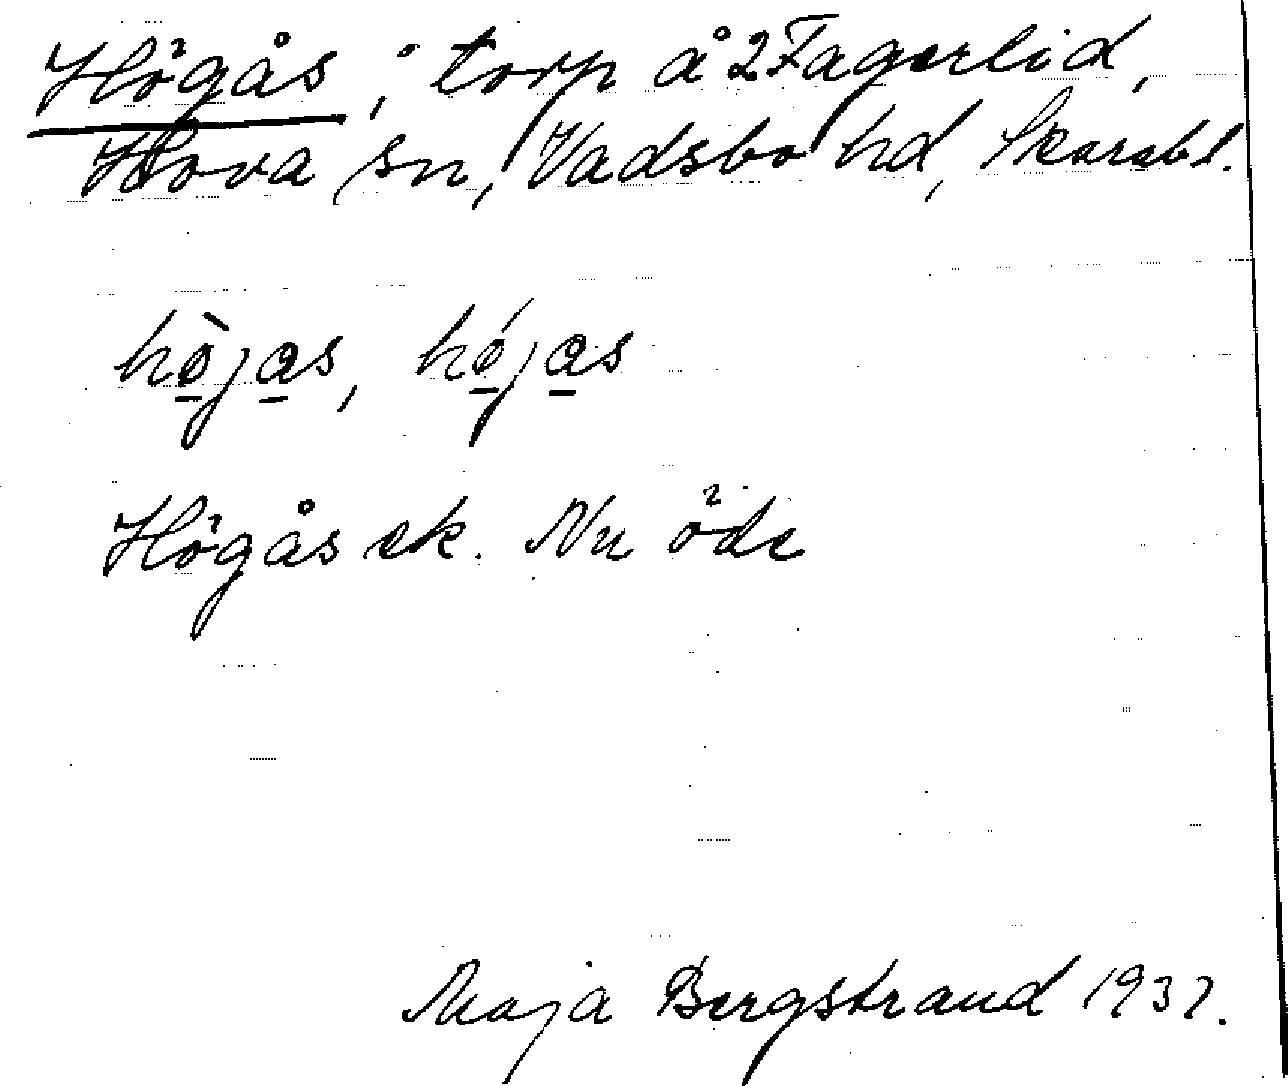 Högås, torp å 2 Fagerlid,
Hova sn, Vadsbo hd, Skarabl.
hò̱ja̱s, hó̱ja̱s
Högås ek. Nu öde
Maja Bergstrand 1937.